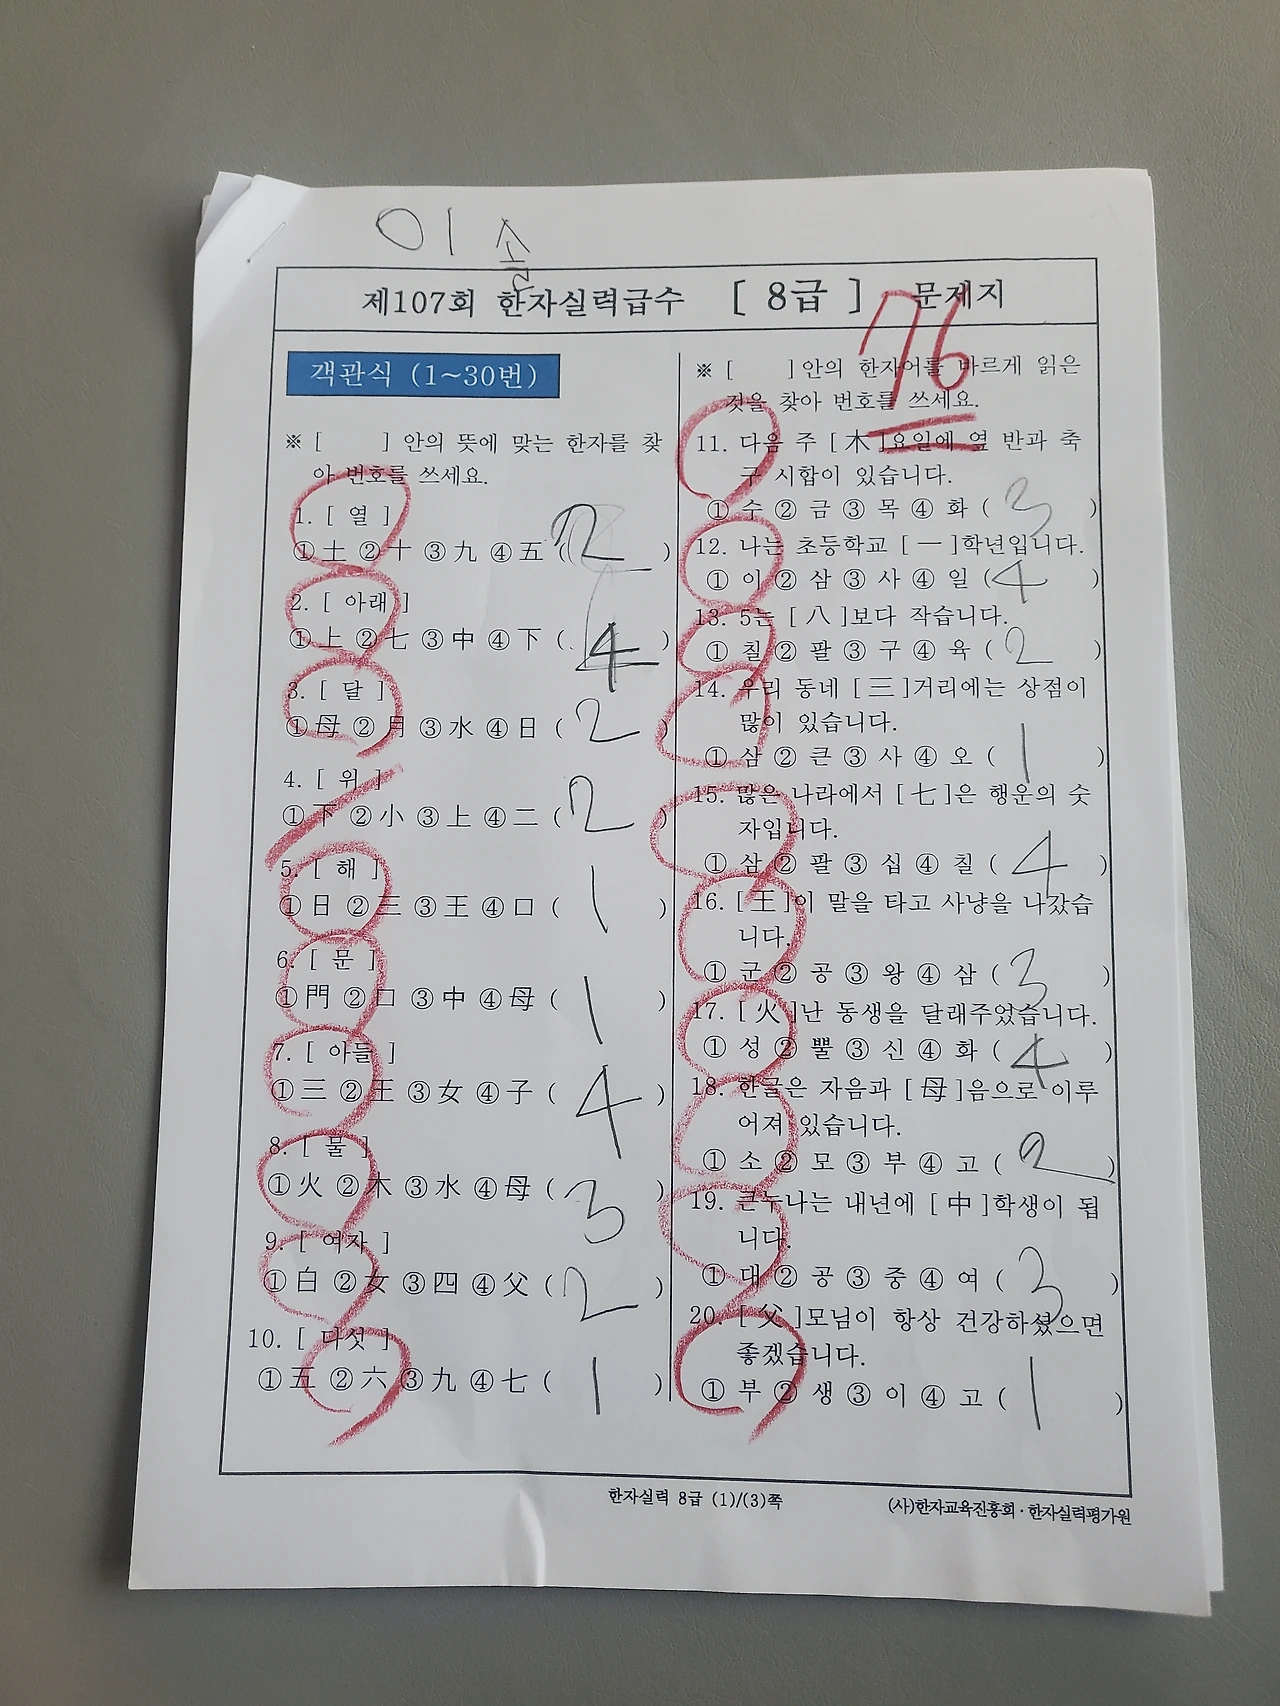 이솔
제107회 한자실력급수 [ 8급 ] 문제지
76
객관식 (1~30번)
※ [ ] 안의 뜻에 맞는 한자를 찾
아 번호를 쓰세요.
1. [ 열 ]
①土 ②十 ③九 ④五 ( 2 )
2. [ 아래 ]
①上 ②七 ③中 ④下 ( 4 )
3. [ 달 ]
①母 ②月 ③水 ④日 ( 2 )
4. [ 위 ]
①下 ②小 ③上 ④二 ( 2 )
5. [ 해 ]
①日 ②三 ③王 ④口 ( 1 )
6. [ 문 ]
①門 ②口 ③中 ④母 ( 1 )
7. [ 아들 ]
①三 ②王 ③女 ④子 ( 4 )
8. [ 물 ]
①火 ②木 ③水 ④母 ( 3 )
9. [ 여자 ]
①白 ②女 ③四 ④父 ( 2 )
10. [ 다섯 ]
①五 ②六 ③九 ④七 ( 1 )
※ [ ]안의 한자어를 바르게 읽은
것을 찾아 번호를 쓰세요.
11. 다음 주 [ 木 ]요일에 옆 반과 축
구 시합이 있습니다.
① 수 ② 금 ③ 목 ④ 화 ( 3 )
12. 나는 초등학교 [ 一 ]학년입니다.
① 이 ② 삼 ③ 사 ④ 일 ( 4 )
13. 5는 [ 八 ]보다 작습니다.
① 칠 ② 팔 ③ 구 ④ 육 ( 2 )
14. 우리 동네 [ 三 ]거리에는 상점이
많이 있습니다.
① 삼 ② 큰 ③ 사 ④ 오 ( 1 )
15. 많은 나라에서 [ 七 ]은 행운의 숫
자입니다.
① 삼 ② 팔 ③ 십 ④ 칠 ( 4 )
16. [ 王 ]이 말을 타고 사냥을 나갔습
니다.
① 군 ② 공 ③ 왕 ④ 삼 ( 3 )
17. [ 火 ]난 동생을 달래주었습니다.
① 성 ② 뿔 ③ 신 ④ 화 ( 4 )
18. 한글은 자음과 [ 母 ]음으로 이루
어져 있습니다.
① 소 ② 모 ③ 부 ④ 고 ( 2 )
19. 큰누나는 내년에 [ 中 ]학생이 됩
니다.
① 대 ② 공 ③ 중 ④ 여 ( 3 )
20. [ 父 ]모님이 항상 건강하셨으면
좋겠습니다.
① 부 ② 생 ③ 이 ④ 고 ( 1 )
한자실력 8급 (1)/(3)쪽
(사)한자교육진흥회·한자실력평가원